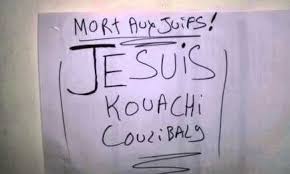 MORT AUX JUIFS!
JE SUIS
KOUACHI
COULIBALY